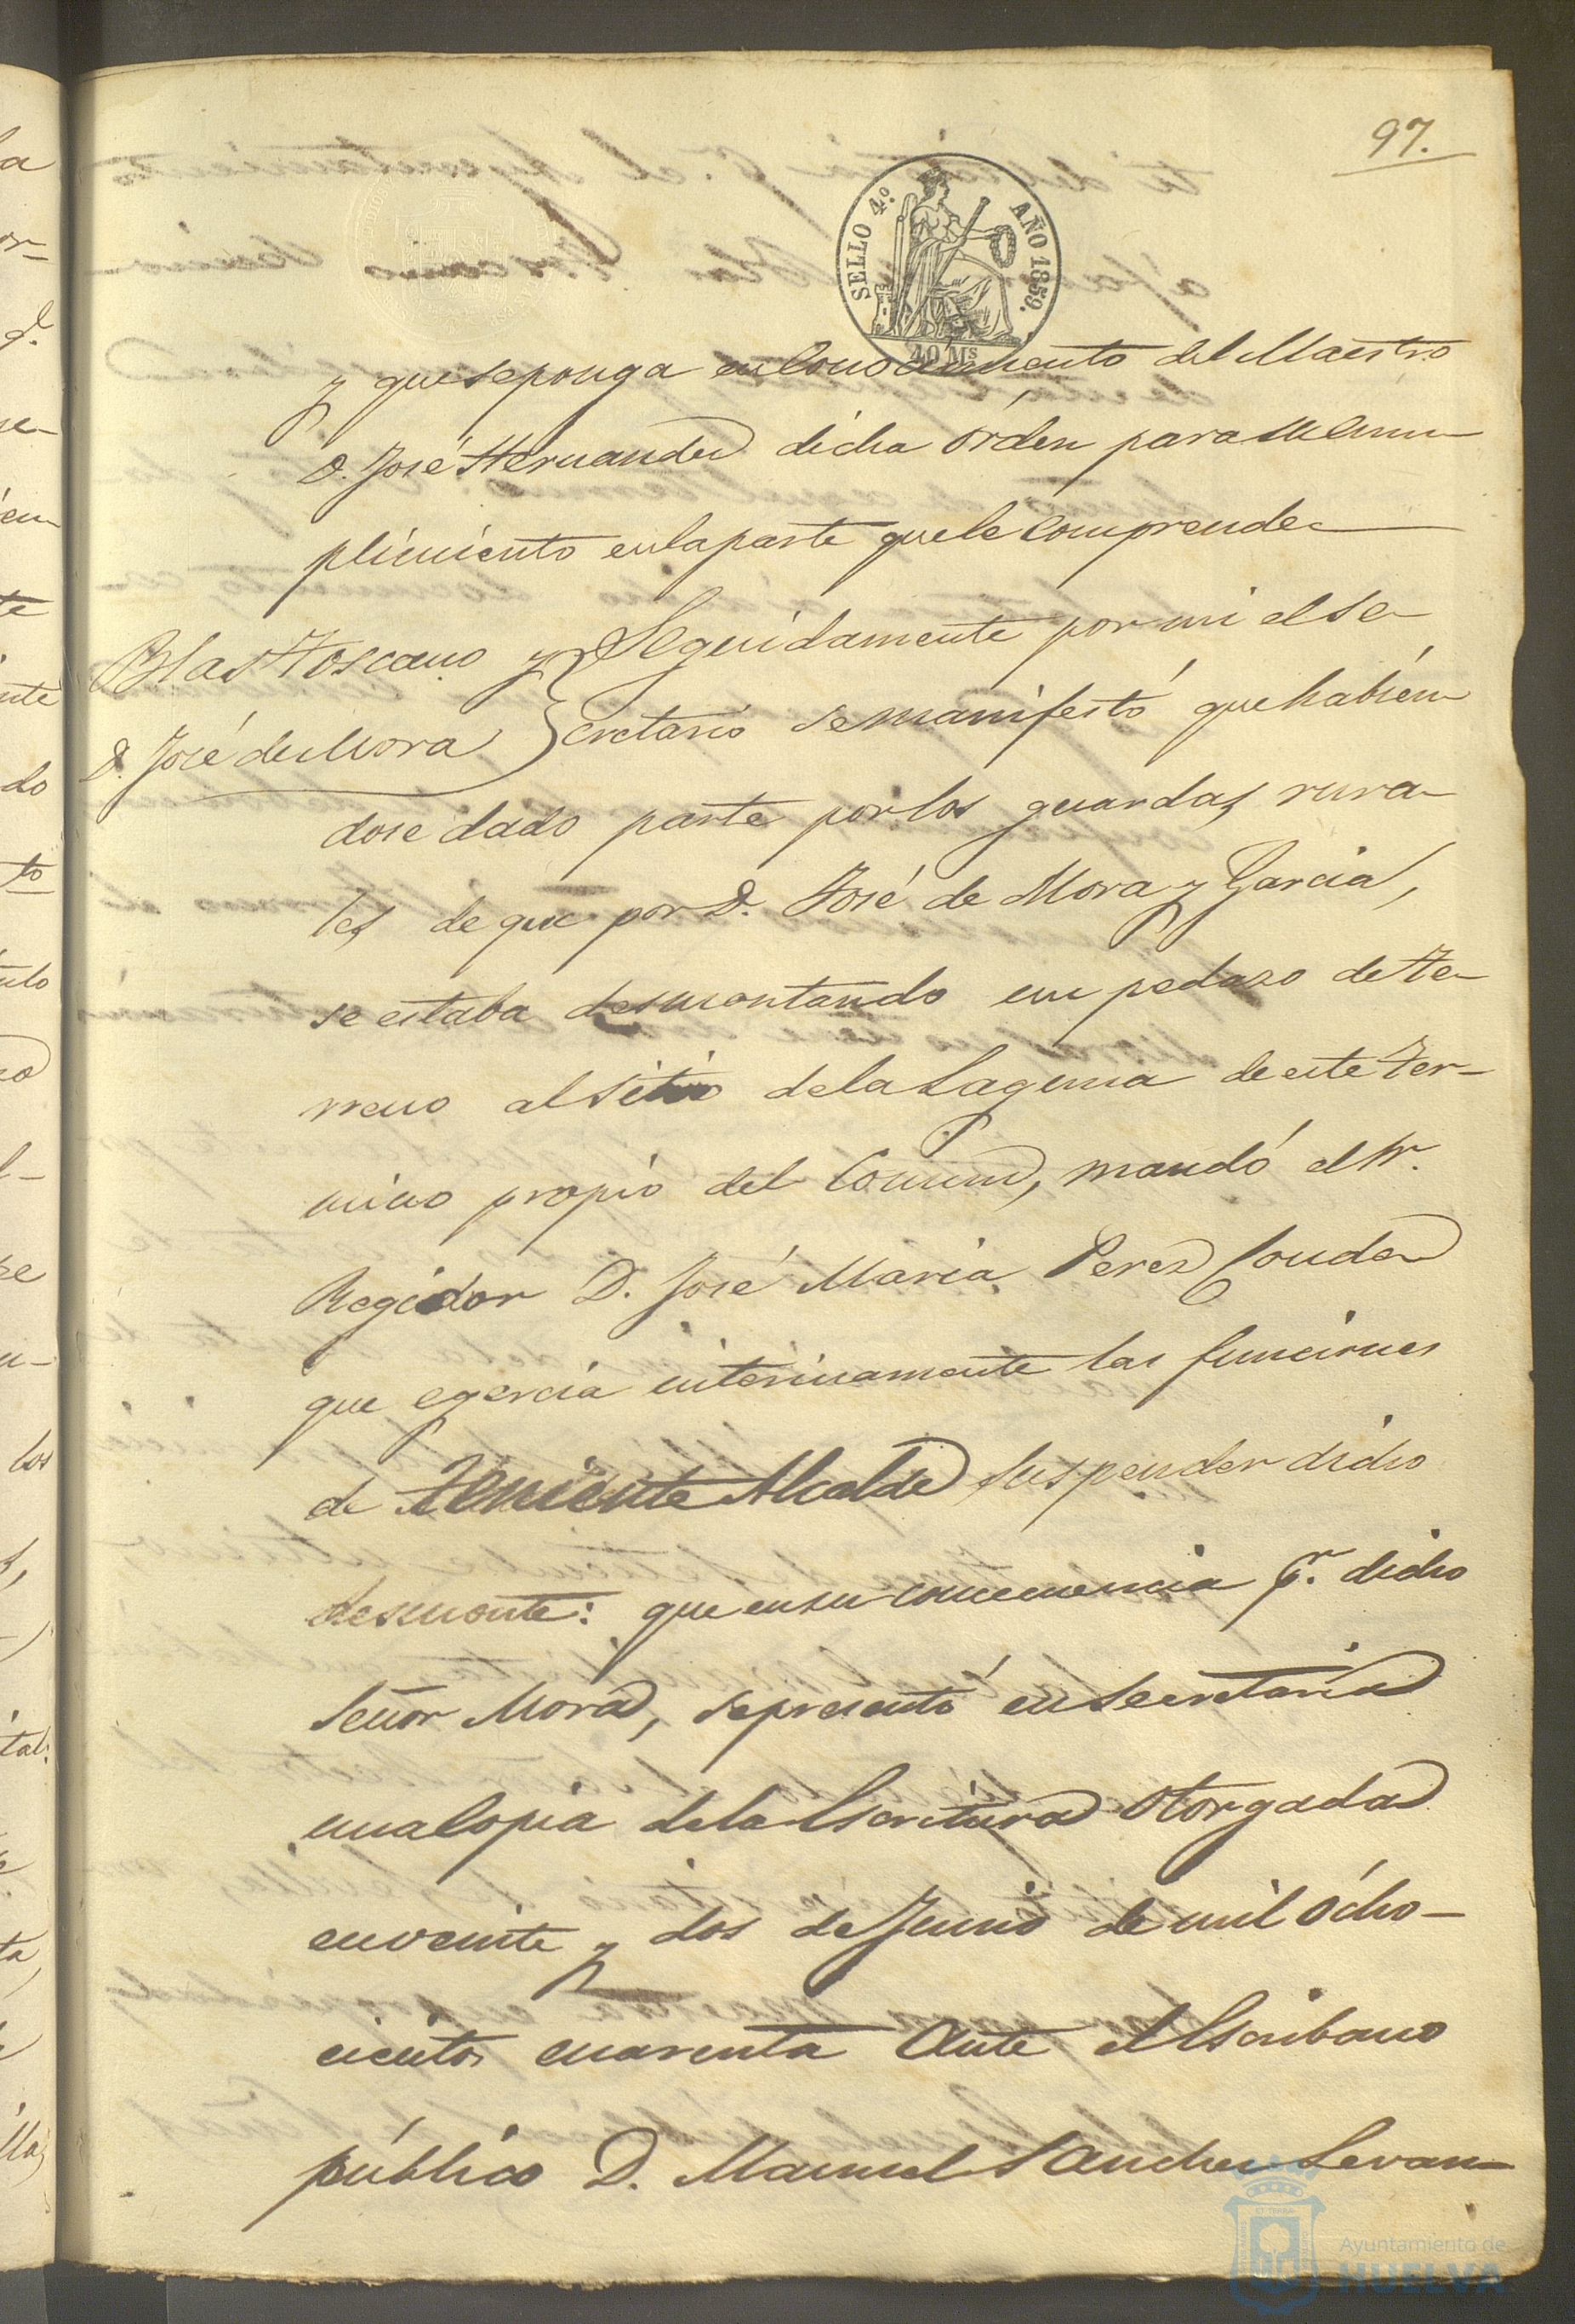 97.
SELLO 4.º AÑO 1859.
40 Ms
y que se ponga en conocimiento del Maestro
D. José Hernandez dicha órden para su cum-
plimiento en la parte que le comprende
Blas Toscano y
D. José de Mora
Seguidamente por mi el Se-
cretario se manifestó que habién-
dose dado parte por los guardas rura-
les de que por D. José de Mora y Garcia,
se estaba desmontando un pedazo de te-
rreno al sitio de la Laguna de este tér-
mino propio del Comun, mandó el Sr.
Regidor D. José Maria Perez Conde
que egercia interinamente las funciones
de Teniente Alcalde suspender dicho
desmonte: que en su consecuencia pr. dicho
Señor Mora, se presentó en Secretaria
una Copia de la Escritura otorgada
en veinte y dos de Junio de mil ócho-
cientos cuarenta ante el Escribano
público D. Manuel Sanchez Levan-
Ayuntamiento de
HUELVA